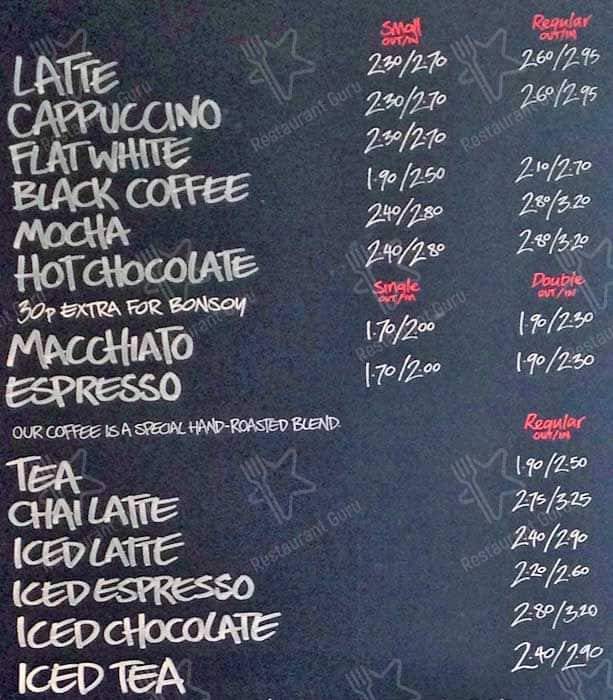 Small Regular
OUT/IN OUT/IN
LATTE 2.30/2.70 2.60/2.95
CAPPUCCINO 2.30/2.70 2.60/2.95
FLAT WHITE 2.30/2.70
BLACK COFFEE 1.90/2.50 2.10/2.70
MOCHA 2.40/2.80 2.80/3.20
HOT CHOCOLATE 2.40/2.80 2.80/3.20
30p EXTRA FOR BONSOY Single Double
OUT/IN OUT/IN
MACCHIATO 1.70/2.00 1.90/2.30
ESPRESSO 1.70/2.00 1.90/2.30
OUR COFFEE IS A SPECIAL HAND-ROASTED BLEND. Regular
OUT/IN
TEA 1.90/2.50
CHAI LATTE 2.75/3.25
ICED LATTE 2.40/2.90
ICED ESPRESSO 2.20/2.60
ICED CHOCOLATE 2.80/3.20
ICED TEA 2.40/2.90
Restaurant Guru